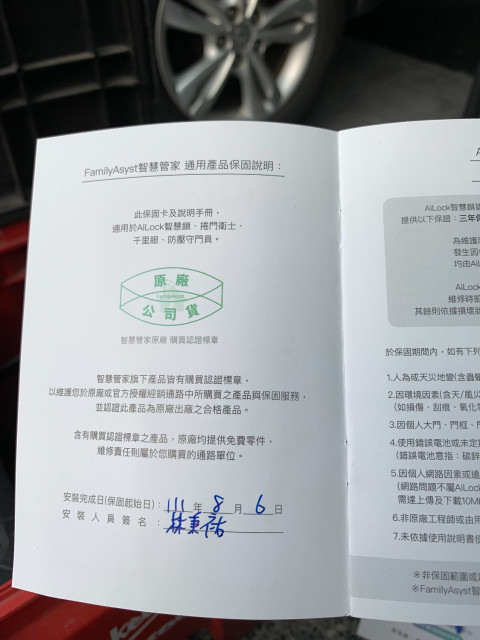 FamilyAsyst智慧管家 通用產品保固說明：
此保固卡及說明手冊，
適用於AiLock智慧鎖、捲門衛士、
千里眼、防壓守門員。
原廠
FamilyAsyst
公司貨
智慧管家原廠 購買認證標章
智慧管家旗下產品皆有購買認證標章，
以維護您於原廠或官方授權經銷通路中所購買之產品與保固服務，
並認證此產品為原廠出廠之合格產品。
含有購買認證標章之產品，原廠均提供免費零件，
維修責任則屬於您購買的通路單位。
安裝完成日(保固起始日)：111 年 8 月 6 日
安裝人員簽名：林秉祐
AiLock智慧鎖
提供以下保證：三年保
為維護
發生因
均由AiL
AiLoc
維修時節
其餘則依據損壞狀
於保固期間內，如有下列
1.人為或天災地變(含蟲
2.因環境因素(含天/風災
(如損傷、刮痕、氧化等
3.因個人大門、門框、門
4.使用錯誤電池或未定期
(錯誤電池意指：碳鋅
5.因個人網路因素或遠
(網路問題不屬AiLoc
需達上傳及下載10M
6.非原廠工程師或由用
7.未依據使用說明書使
※非保固範圍或
※FamilyAsyst智